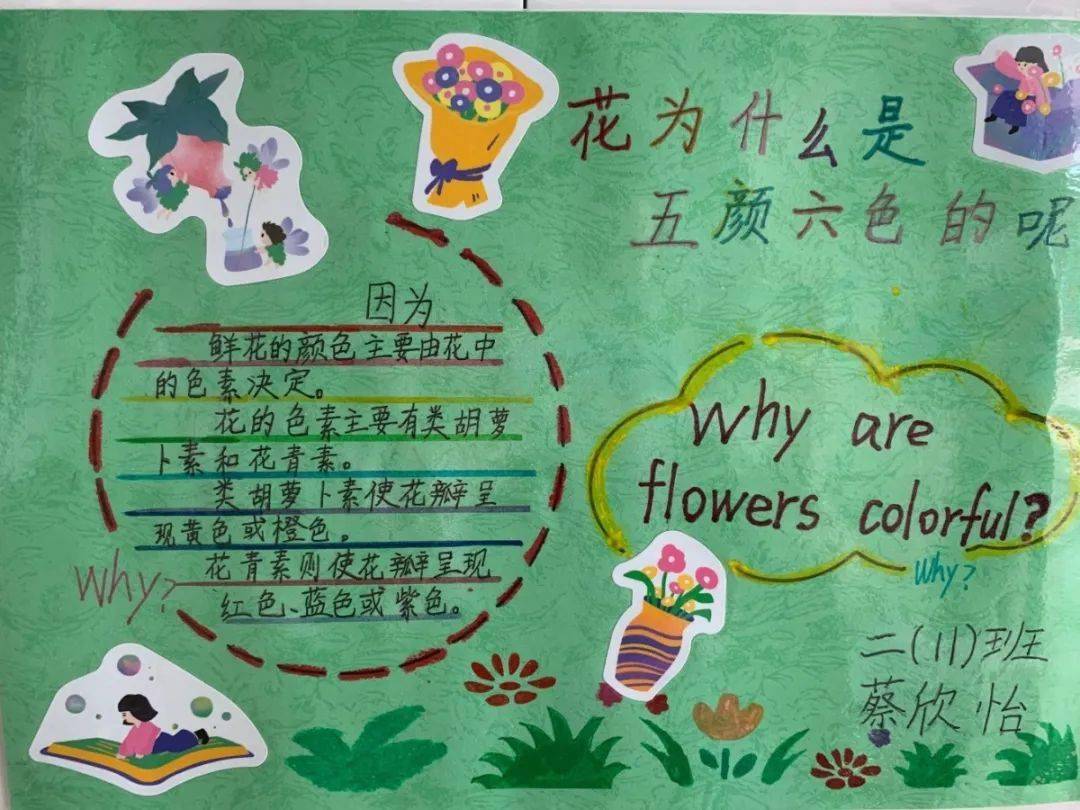 花为什么是
五颜六色的呢
因为
鲜花的颜色主要由花中
的色素决定。
花的色素主要有类胡萝
卜素和花青素。
类胡萝卜素使花瓣呈
现黄色或橙色。
花青素则使花瓣呈现
红色、蓝色或紫色。
Why?
Why are
flowers colorful?
Why?
二(11)班
蔡欣怡